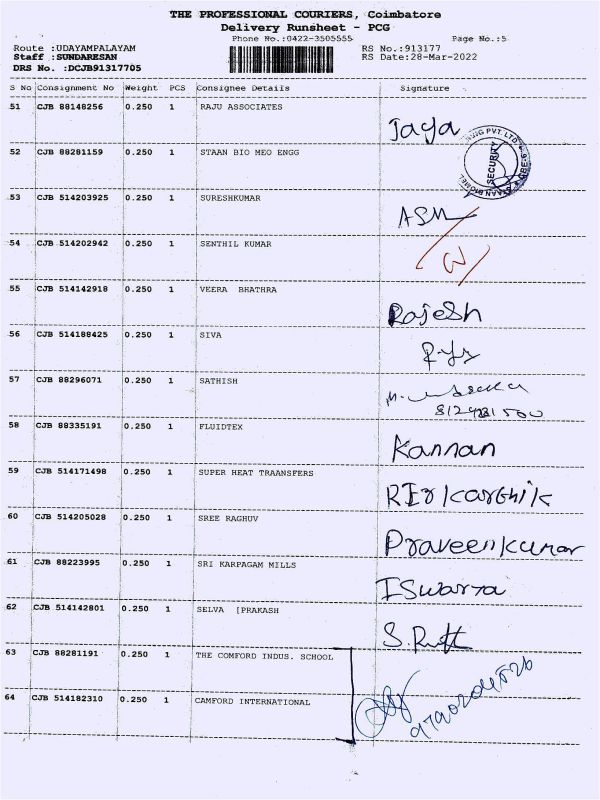 THE PROFESSIONAL COURIERS, Coimbatore
Delivery Runsheet - PCG
Phone No.:0422-3505555 Page No.:5
Route :UDAYAMPALAYAM RS No.:913177
Staff :SUNDARESAN RS Date:28-Mar-2022
DRS No. :DCJB91317705
S No Consignment No Weight PCS Consignee Details Signature
51 CJB 88148256 0.250 1 RAJU ASSOCIATES Jaya
52 CJB 88281159 0.250 1 STAAN BIO MEO ENGG SECURITY
53 CJB 514203925 0.250 1 SURESHKUMAR
54 CJB 514202942 0.250 1 SENTHIL KUMAR
55 CJB 514142918 0.250 1 VEERA BHATHRA Rajesh
56 CJB 514188425 0.250 1 SIVA
57 CJB 88296071 0.250 1 SATHISH
58 CJB 88335191 0.250 1 FLUIDTEX Kannan
59 CJB 514171498 0.250 1 SUPER HEAT TRAANSFERS
60 CJB 514205028 0.250 1 SREE RAGHUV Praveenkumar
61 CJB 88223995 0.250 1 SRI KARPAGAM MILLS ISwarya
62 CJB 514142801 0.250 1 SELVA [PRAKASH
63 CJB 88281191 0.250 1 THE COMFORD INDUS. SCHOOL
64 CJB 514182310 0.250 1 CAMFORD INTERNATIONAL